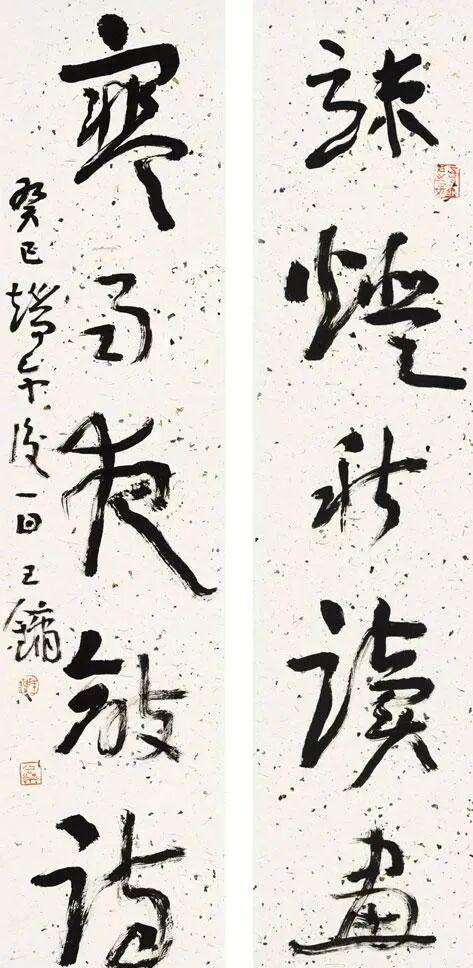 疏燈秋讀畫
寒雨夜詩
癸巳端午後一日王鏞